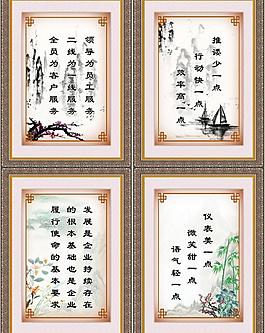 领导为员工服务
二线为一线服务
全员为客户服务
推诿少一点
行动快一点
效率高一点
发展是企业持续存在
的根本基础也是企业
履行使命的基本要求
仪表美一点
微笑甜一点
语气轻一点